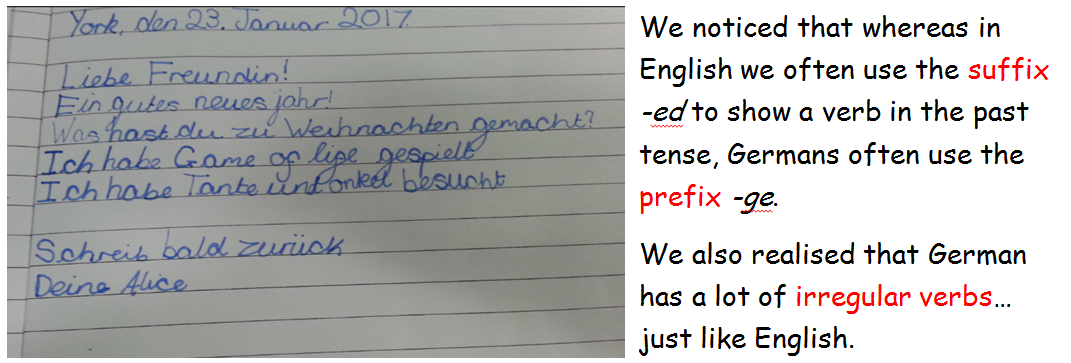 York, den 23. Januar 2017.
Liebe Freundin!
Ein gutes neues jahr!
Was hast du zu Weihnachten gemacht?
Ich habe Game of life gespielt
Ich habe Tante und onkel besucht
Schreib bald zurück
Deine Alice
We noticed that whereas in
English we often use the suffix
-ed to show a verb in the past
tense, Germans often use the
prefix -ge.
We also realised that German
has a lot of irregular verbs…
just like English.